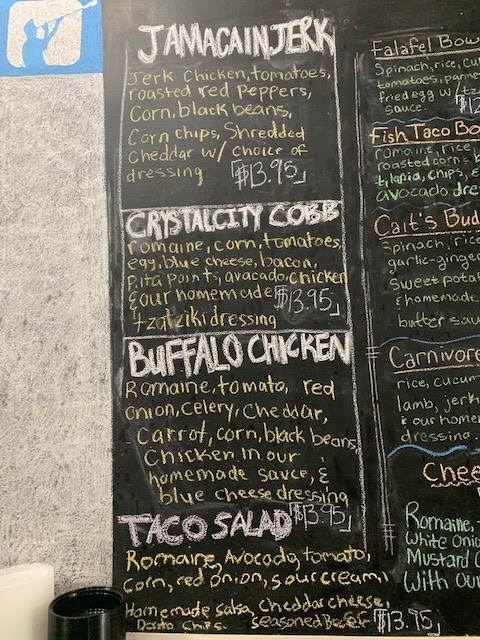 JAMACAIN JERK
Jerk chicken, tomatoes,
roasted red peppers,
Corn, black beans,
Corn chips, Shredded
Cheddar w/ choice of
dressing $13.95
CRYSTAL CITY COBB
romaine, corn, tomatoes,
egg, blue cheese, bacon,
pita points, avocado, chicken
& our homemade $13.95
tzatziki dressing
BUFFALO CHICKEN
Romaine, tomato, red
onion, celery, cheddar,
Carrot, corn, black beans,
Chicken in our
homemade sauce, &
blue cheese dressing
$13.95
TACO SALAD
Romaine, Avocado, tomato,
Corn, red onion, sour cream,
Homemade salsa, cheddar cheese,
Dorito Chips. Seasoned Beef $13.95
Falafel Bow
Spinach, rice, cu
tomatoes, parme
fried egg w/ tz
sauce. $12
Fish Taco Bo
romaine, rice,
roasted corn & b
tilapia, chips, &
avocado dre
Cait's Bud
Spinach, rice
garlic-ginge
sweet potat
& homemade
butter sau
Carnivore
rice, cucum
lamb, jerk
& our home
dressing.
Chee
Romaine,
White Onio
Mustard
With Our